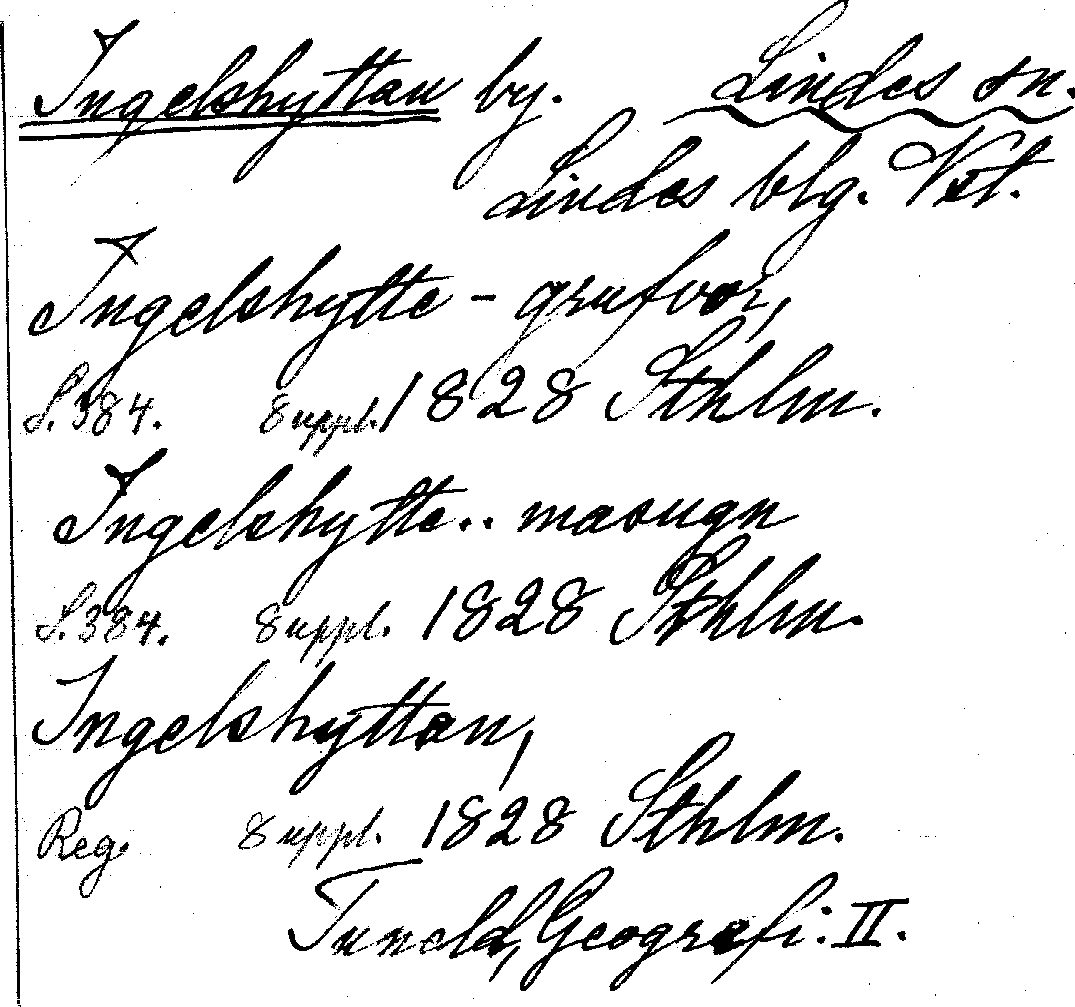 Ingelshyttan by. Lindes sn.
Lindes blg. Vstl.
Ingelshytte - grufvor,
S. 384. Suppl. 1828 Sthlm.
Ingelshytte.. masugn
S. 384. Suppl. 1828 Sthlm.
Ingelshyttan,
Reg. Suppl. 1828 Sthlm.
Tuneld, Geografi. II.